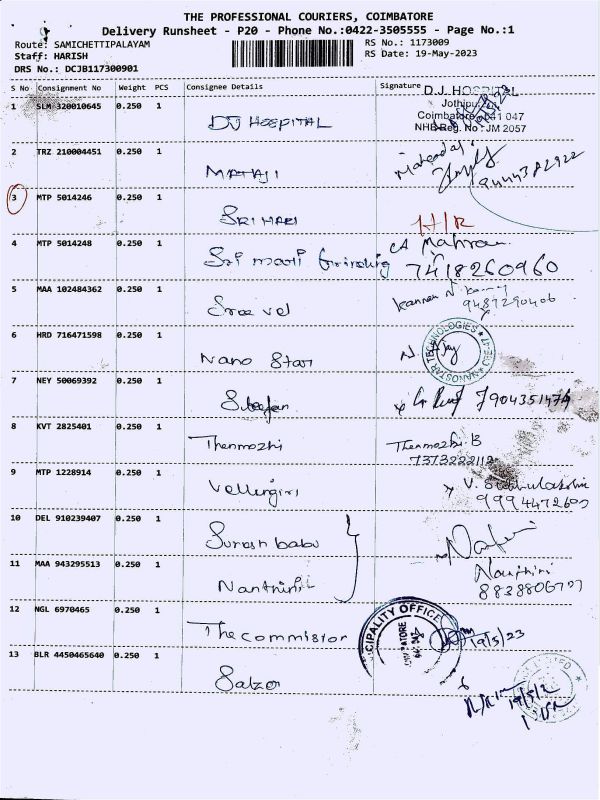 THE PROFESSIONAL COURIERS, COIMBATORE
Delivery Runsheet - P20 - Phone No.:0422-3505555 - Page No.:1
Route: SAMICHETTIPALAYAM RS No.: 1173009
Staff: HARISH RS Date: 19-May-2023
DRS No.: DCJB117300901
S No Consignment No Weight PCS Consignee Details Signature
D.J. HOSPITAL
Jothipuram
Coimbatore 641 047
NHB Reg. No : JM 2057
1 SLM 320010645 0.250 1 DJ HOSPITAL
2 TRZ 210004451 0.250 1 MATAJI
3 MTP 5014246 0.250 1 SRI HARI H/R
4 MTP 5014248 0.250 1 Sri maali 7418260960
5 MAA 102484362 0.250 1 Sree vel Kannan N 9487290406
6 HRD 716471598 0.250 1 Nano Star N. Ajay
NANOSTAR TECHNOLOGIES
7 NEY 50069392 0.250 1 7904351474
8 KVT 2825401 0.250 1 Thenmozhi Thenmozhi.B
7373222112
9 MTP 1228914 0.250 1 Vellingiri
10 DEL 910239407 0.250 1 Suresh babu
11 MAA 943295513 0.250 1 Nanthini Nanthini
12 NGL 6970465 0.250 1 The commisior 19/5/23
CIPALITY OFFICE
13 BLR 4450465640 0.250 1 Salzer